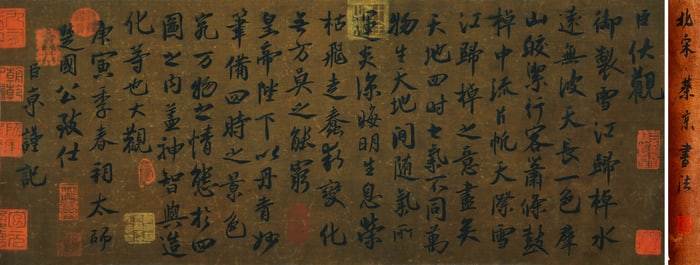 臣伏觀
御製雪江歸棹水
遠無波天長一色羣
山皎潔行客蕭條鼓
棹中流片帆天際雪
江歸棹之意盡矣
天地四時之氣不同萬
物生天地間隨氣所
運炎涼晦明生息榮
枯飛走蠢動變化
無方莫之能窮
皇帝陛下以丹青妙
筆備四時之景色
究萬物之情態於四
圖之內蓋神智與造
化等也大觀
庚寅季春朔太師
楚國公致仕
臣京謹記
北宋蔡京書法